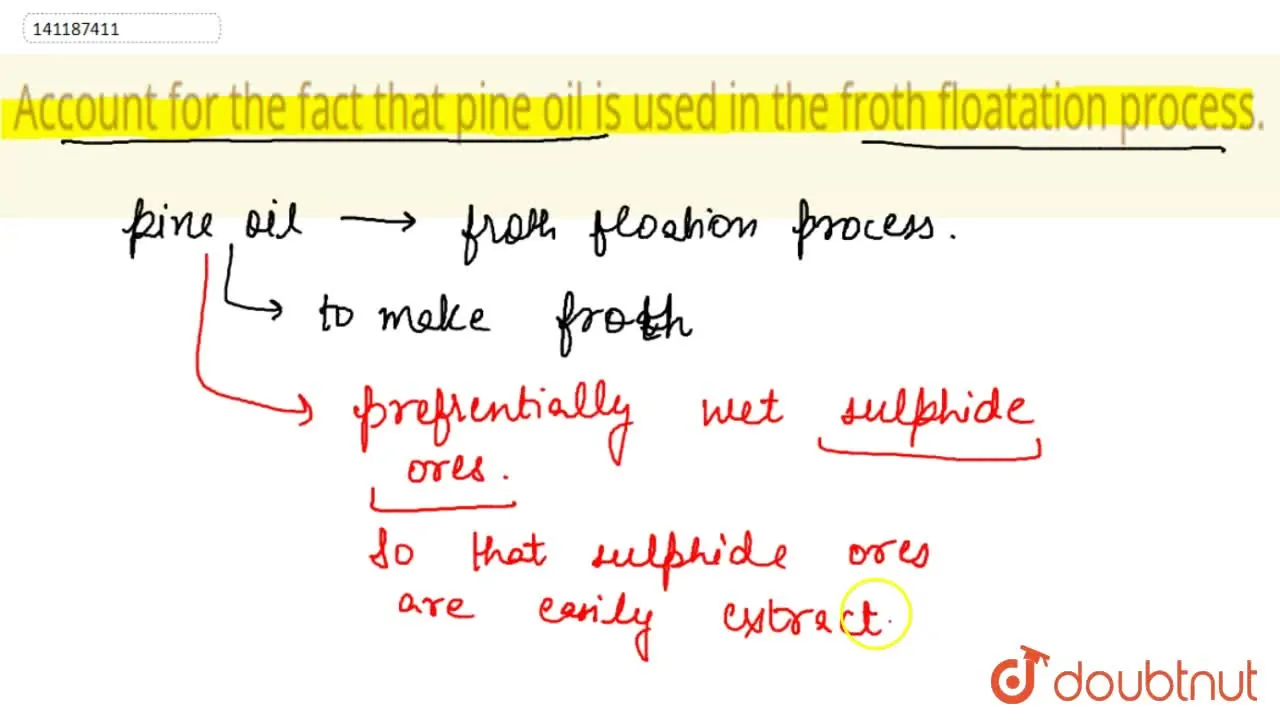 141187411
Account for the fact that pine oil is used in the froth floatation process.
pine oil → froth floation process.
to make froth
prefrentially wet sulphide
ores.
so that sulphide ores
are easily extract.
doubtnut